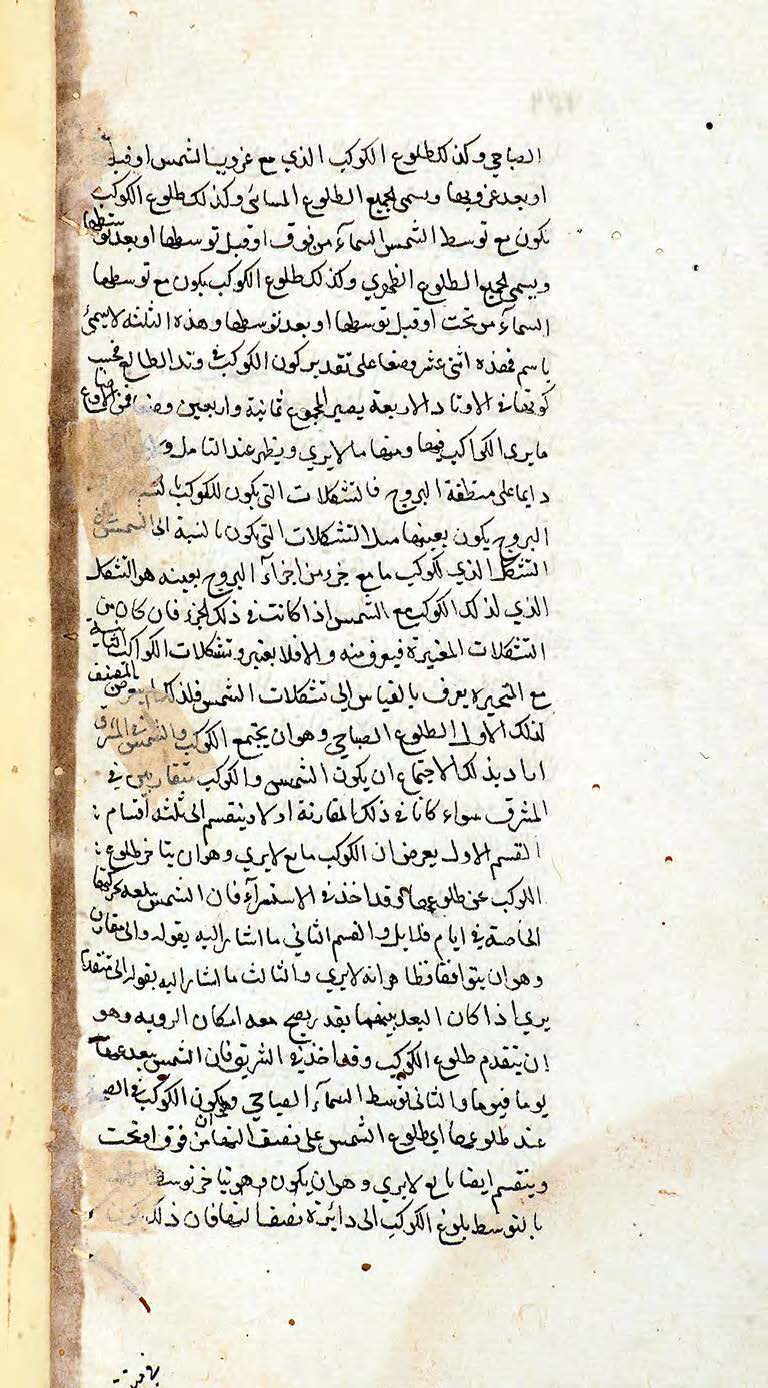 الصباحي وكذلك طلوع الكوكب الذي مع غروب الشمس او قبله
او بعد غروبها ويسمى الجميع الطلوع المسائى وكذلك طلوع الكوكب
يكون مع توسط الشمس السمآء من فوق او قبل توسطها او بعد توسطها
ويسمى الجميع الطلوع الظهري وكذلك طلوع الكوكب يكون مع توسطها
السمآء من تحت او قبل توسطها او بعد توسطها وهذه الثلثه لا يسمى
باسم فهذه اثنى عشر وصفا على تقدير كون الكوكب في وتد الطالع فبحسب
كونها في الاوتاد الاربعة يصير الجموع ثمانية واربعين وضعا فمن الاوضاع
ما يرى الكواكب فيها ومنها ما لا يري ويظهر عند التامل
دايما على منطقة البروج فالتشكلات التي يكون للكوكب بالنسبة
البروج يكون بعينها التشكلات التي يكون بالنسبة الى الشمس
التشكل الذي لكوكب ما مع جزء من اجزآء البروج بعينه هو التشكل
الذي لذلك الكوكب مع الشمس اذا كانت في ذلك الجزء فان كان من
التشكلات المغيرة فيعرف منه والا فلا يعتبر وتشكلات الكواكب الثابتة
مع المتحيرة يعرف بالقياس الى تشكلات الشمس فلذلك لم يتعرض المصنف
لذلك الاول الطلوع الصباحي وهو ان يجتمع الكوكب والشمس في المشرق
اراد بذلك الاجتماع ان يكون الشمس والكوكب متقاربين في
المشرق سواء كانا في ذلك المقارنة او لا وينقسم الى ثلثه اقسام :
القسم الاول يعرض ان الكوكب تابع لا يري وهو ان يتاخر طلوع :
الكوكب عن طلوعها وقد اخذ في الاستسرآء فان الشمس يلحقه بحركتها
الخاصة في ايام قلايل والقسم الثاني ما اشار اليه بقوله والى مقارن
وهو ان يتوافقا وظاهر انه لا يري والثالث ما اشار اليه بقوله الى متقدم
يري اذا كان البعد بينهما بقدر يصح معه امكان الرويه وهو
ان يتقدم طلوع الكوكب وقد اخذ في التشريق فان الشمس يبعد عنه
يوما فيوما والثانى توسط السمآء الصباحي وهو ان يكون الكوكب في
عند طلوعها اي طلوع الشمس على نصف النهار من فوق او تحت
وينقسم ايضا تابع لا يري وهو ان يكون وهو يتاخر توسط
بالتوسط بلوغ الكوكب الى دائرة نصف النهار فان ذلك يكون